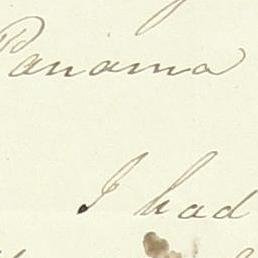 Panama
I had